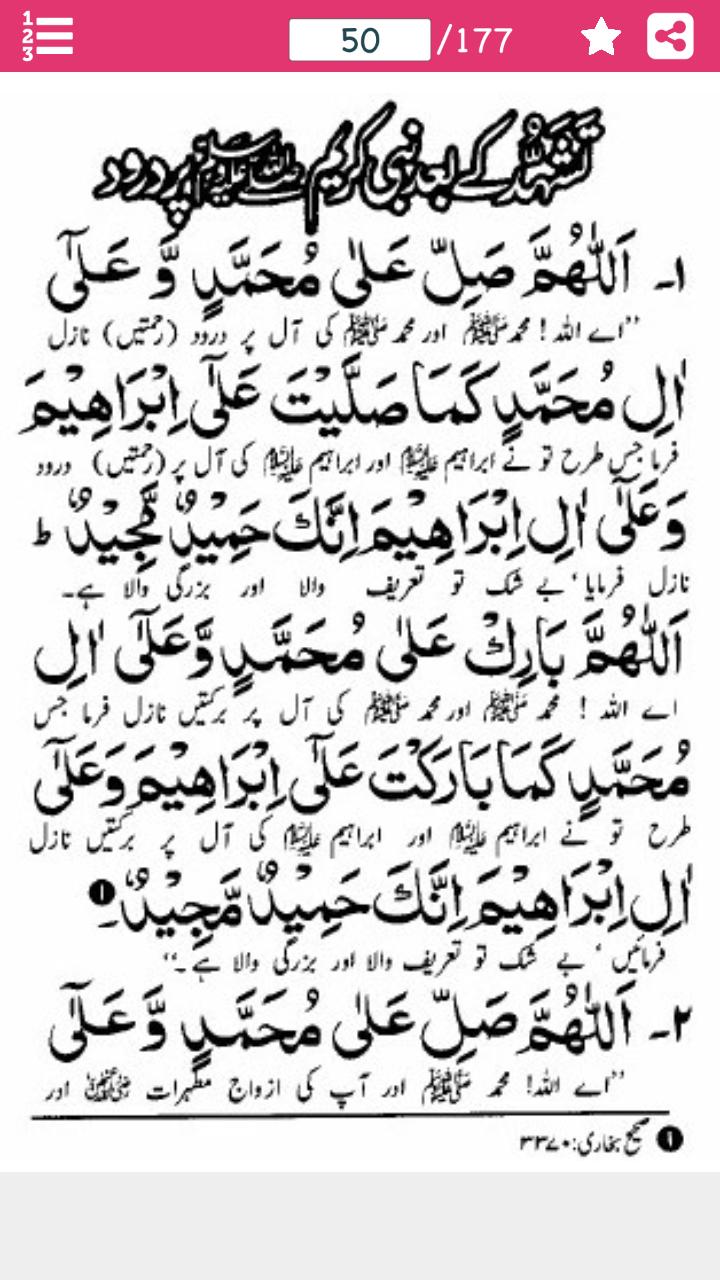 1 2 3
50 /177
تَشَہُّد کے بعد نبی کریم ﷺ پر درود
١۔ اَللّٰهُمَّ صَلِّ عَلٰى مُحَمَّدٍ وَّ عَلٰٓى
”اے اللہ ! محمد ﷺ اور محمد ﷺ کی آل پر درود (رحمتیں) نازل
اٰلِ مُحَمَّدٍ كَمَا صَلَّيْتَ عَلٰٓى اِبْرَاهِيْمَ
فرما جس طرح تو نے ابراہیم علیہ السلام اور ابراہیم علیہ السلام کی آل پر (رحمتیں) درود
وَعَلٰٓى اٰلِ اِبْرَاهِيْمَ اِنَّكَ حَمِيْدٌ مَّجِيْدٌ ط
نازل فرمایا ‘ بے شک تو تعریف والا اور بزرگی والا ہے۔
اَللّٰهُمَّ بَارِكْ عَلٰى مُحَمَّدٍ وَّعَلٰٓى اٰلِ
اے اللہ ! محمد ﷺ اور محمد ﷺ کی آل پر برکتیں نازل فرما جس
مُحَمَّدٍ كَمَا بَارَكْتَ عَلٰٓى اِبْرَاهِيْمَ وَعَلٰٓى
طرح تو نے ابراہیم علیہ السلام اور ابراہیم علیہ السلام کی آل پر برکتیں نازل
اٰلِ اِبْرَاهِيْمَ اِنَّكَ حَمِيْدٌ مَّجِيْدٌ۔ ❶
فرمائیں ‘ بے شک تو تعریف والا اور بزرگی والا ہے۔“
٢۔ اَللّٰهُمَّ صَلِّ عَلٰى مُحَمَّدٍ وَّ عَلٰٓى
”اے اللہ! محمد ﷺ اور آپ کی ازواج مطہرات رضی اللہ عنہن اور
❶ صحیح بخاری: ٣٣٧٠